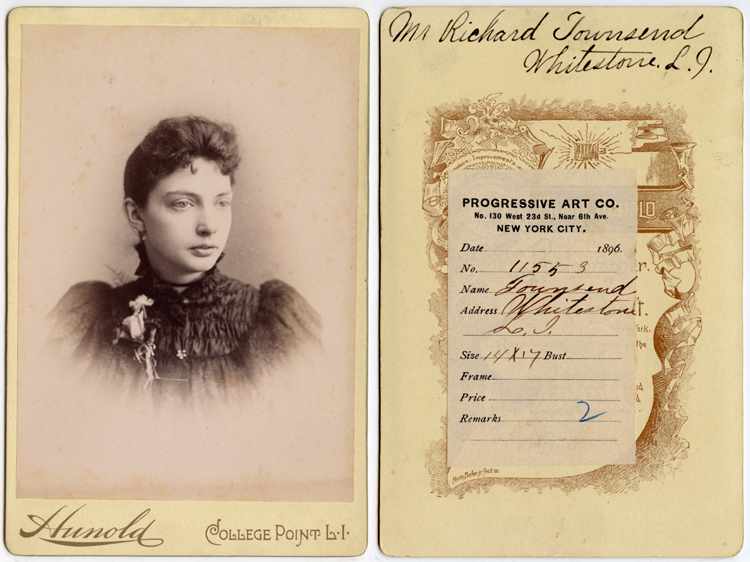 Hunold College Point L.I.
Mr Richard Townsend
Whitestone. L. I.
Improvements
PROGRESSIVE ART CO.
No. 130 West 23d St., Near 6th Ave.
NEW YORK CITY.
Date 1896.
No. 11553
Name Townsend
Address Whitestone
L. I.
Size 14 X 17 Bust
Frame
Price
Remarks 2
LD
r.
t.
rk.
the